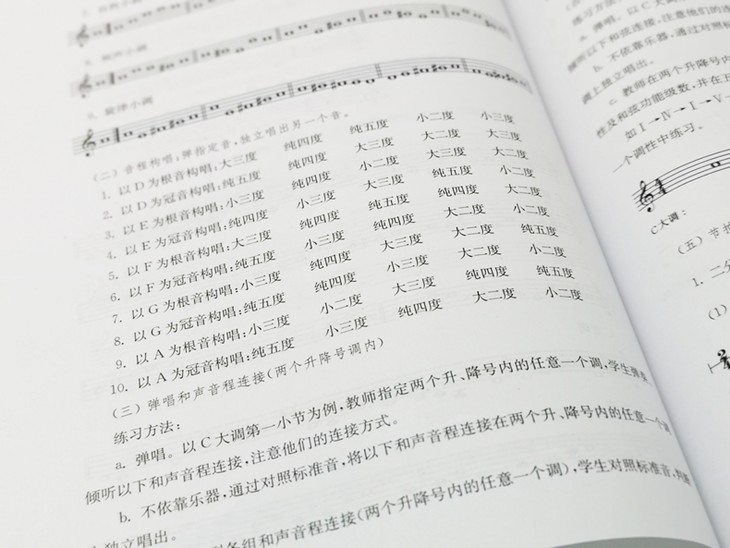 1. 自然小调
2. 和声小调
3. 旋律小调
(二) 音程构唱:弹指定音,独立唱出另一个音。
1. 以 D 为根音构唱:大三度 纯四度 纯五度 小二度 小三度
2. 以 D 为冠音构唱:纯五度 纯四度 大三度 大二度 大三度
3. 以 E 为根音构唱:小三度 纯四度 小二度 纯四度 大二度
4. 以 E 为冠音构唱:纯四度 小三度 大三度 纯五度 小二度
5. 以 F 为根音构唱:大三度 纯四度 纯五度 纯四度 大二度
6. 以 F 为冠音构唱:纯五度 小三度 纯四度 大二度 小二度
7. 以 G 为根音构唱:小三度 纯四度 大三度 大二度 纯五度
8. 以 G 为冠音构唱:纯五度 纯四度 小三度 大二度 小二度
9. 以 A 为根音构唱:小三度 小二度 大三度 纯四度 纯五度
10. 以 A 为冠音构唱:纯五度 小三度 纯四度 大二度 小二度
(三) 弹唱和声音程连接(两个升降号调内)
练习方法:
a. 弹唱。以 C 大调第一小节为例,教师指定两个升、降号内的任意一个调,学生弹奏、
倾听以下和声音程连接,注意他们的连接方式。
b. 不依靠乐器,通过对照标准音,将以下和声音程连接在两个升、降号内的任意一个调
上独立唱出。
各组和声音程连接(两个升降号内的任意一个调),学生对照标准音,判断
练习方法:
a. 弹唱。以 C 大调
倾听以下和弦连接,注意他们的连
b. 不依靠乐器,通过对照标
调上独立唱出。
c. 教师在两个升降号内
性及和弦功能级数,并在五
如 Ⅰ→Ⅳ→Ⅰ→Ⅴ→
一个调性中练习。
C大调:
(五) 节拍
1. 二分
(1)